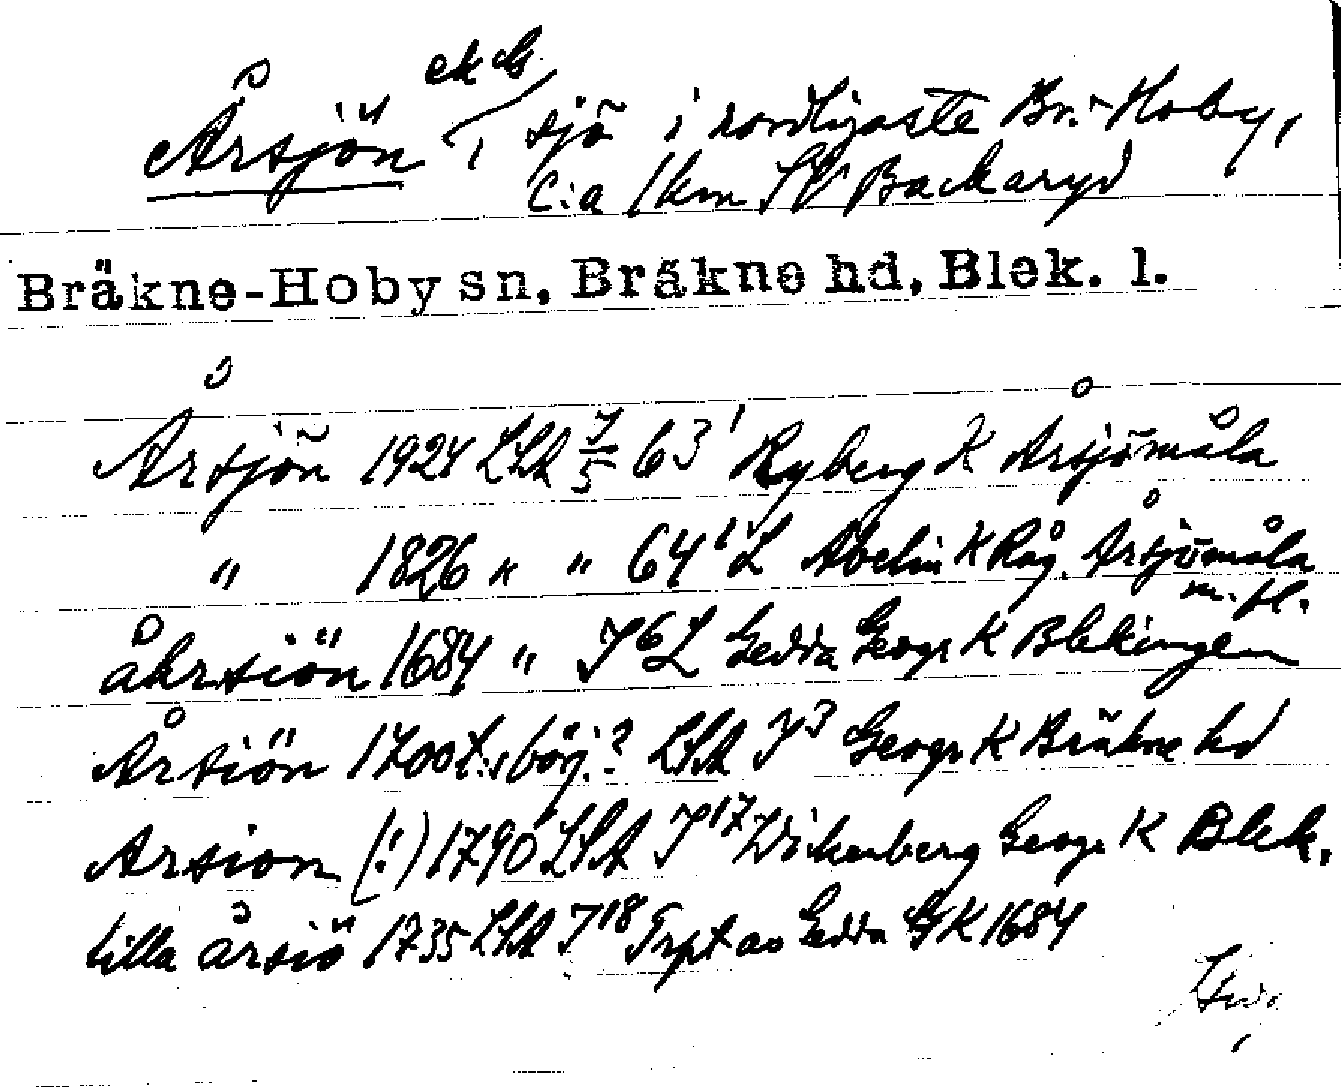 Årsjön ek bl sjö i nordligaste Br.-Hoby,
c:a 1 km SV Backaryd
Bräkne-Hoby sn, Bräkne hd, Blek. l.
Årsjön 1924 LSA 7/5 63' Ryberg K Årsjömåla
" 1826 " " 64' L Abelin K Råg. Årsjömåla
m. fl.
åhrsiön 1684 " J 6 L Gedda Geogr K Blekingen
Årsiön 1700t. börj.? LSA J 3 Geogr K Bräkne hd
Arsion (!) 1790 LSA J 17 Wickenberg Geogr K Blek.
lilla årsiö 1735 LSA J 18 Trpt av Gedda GK 1684